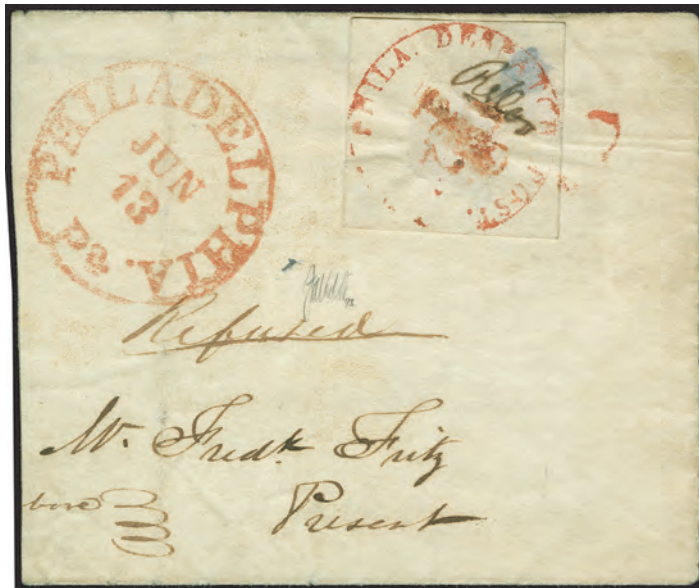 PHILADELPHIA. Pa
JUN
13
PHILA. DESPATCH POST.
Refused
Mr. Fredk. Fritz
Present